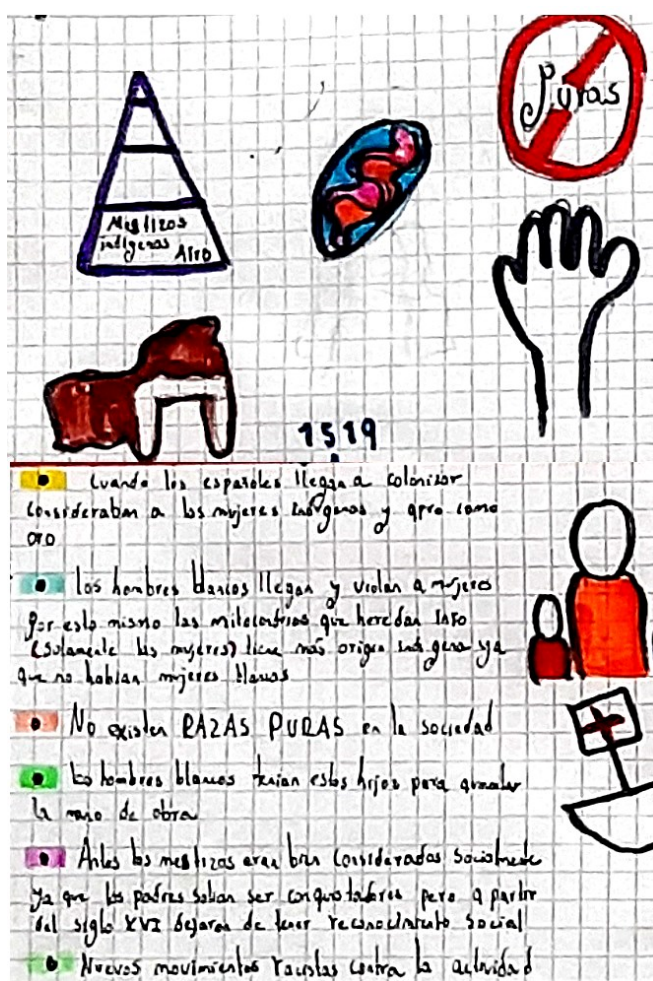 Puras
Mestizos
indigenas Afro
1519
Cuando los españoles llegan a colonizar
consideraban a las mujeres indigenas y afro como
oro
los hombres blancos llegan y violan a mujeres
por esto mismo las mitocondrias que heredan INFO
(solamente las mujeres) tiene más origen indigena ya
que no habian mujeres blancas
No existen RAZAS PURAS en la sociedad
los hombres blancos tenian estos hijos para
la mano de obra
Antes los mestizos eran bien considerados socialmente
ya que los padres solian ser conquistadores pero a partir
del siglo XVI dejaron de tener reconocimiento social
Nuevos movimientos racistas contra la